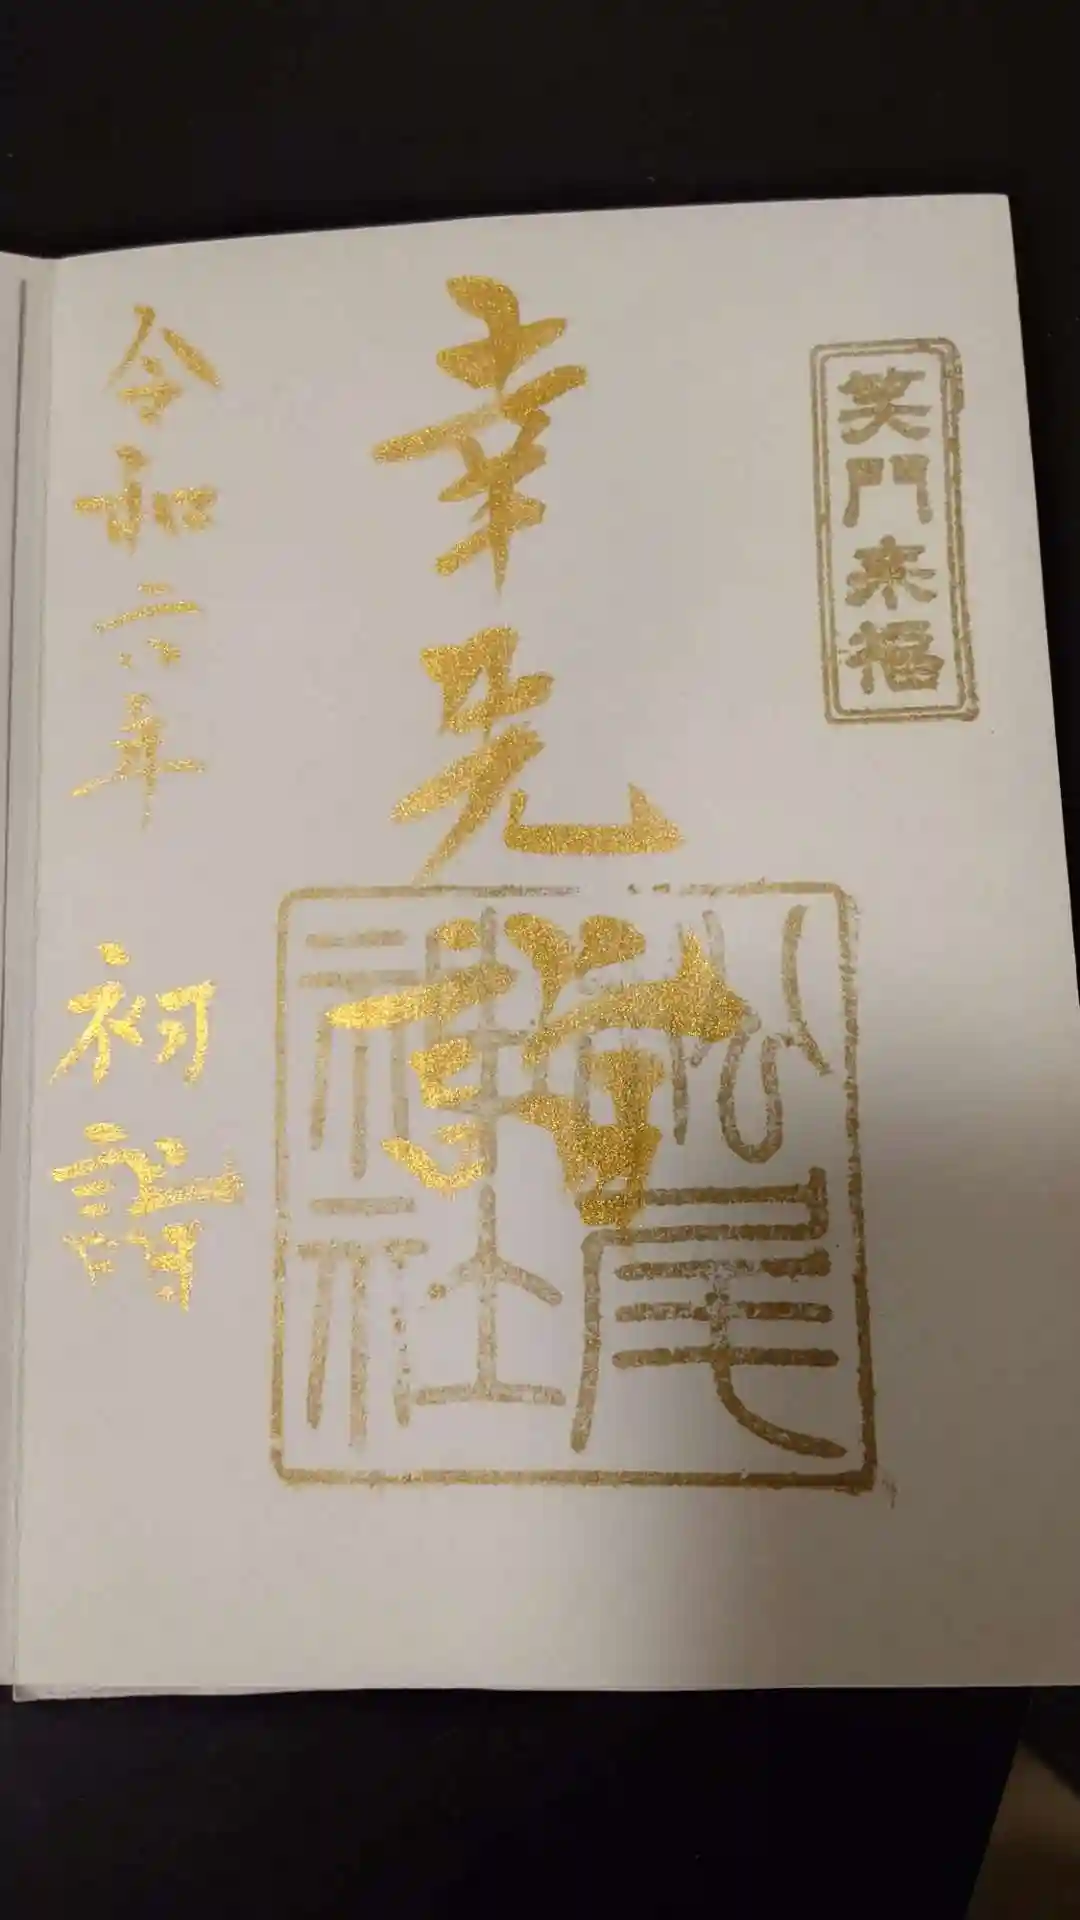 笑門来福
幸先詣
松尾神社
令和六年 初詣